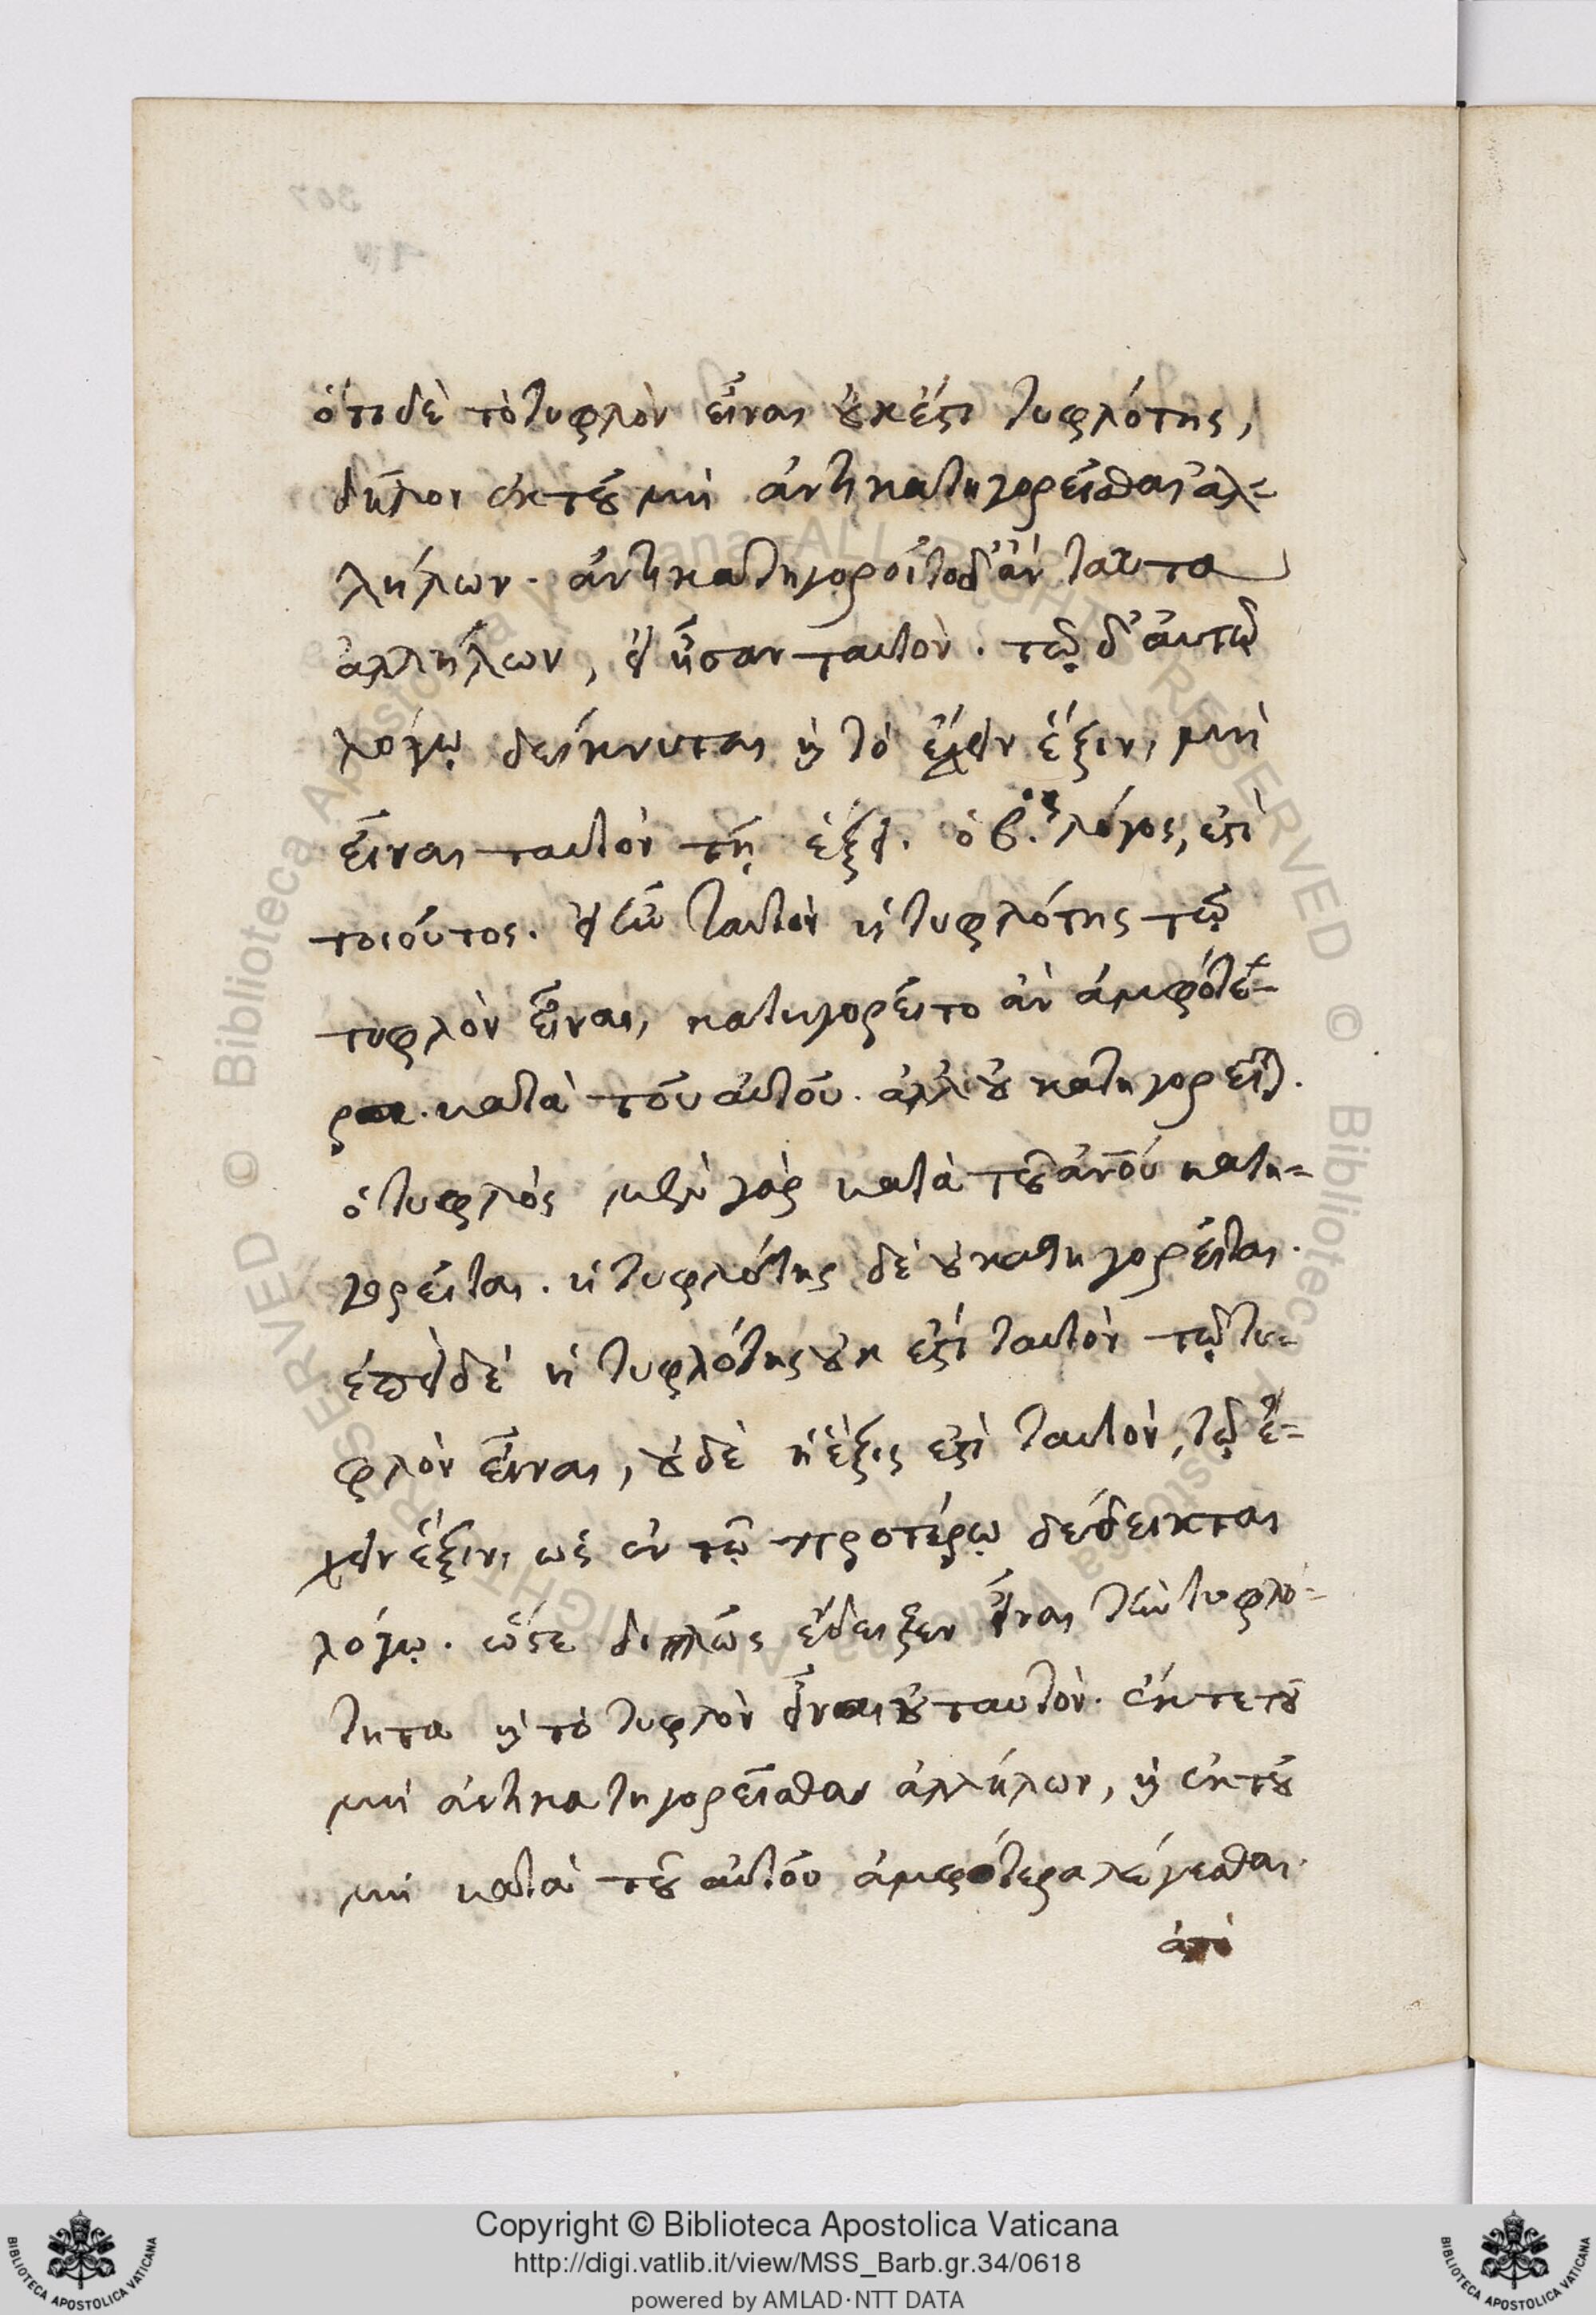 ὅτι δὲ τὸ τυφλὸν εἶναι οὐκ ἔστι τυφλότης,
δηλοῖ ἐκ τοῦ μὴ ἀντικατηγορεῖσθαι ἀλ=
λήλων. ἀντικατηγοροῖτο δ' ἂν ταῦτα
ἀλλήλων, εἰ ἦσαν ταυτὸν. τῷ δ' αὐτῷ
λόγῳ δείκνυται καὶ τὸ ἔχειν ἕξιν, μὴ
εἶναι ταυτὸν τῇ ἕξει. ὁ β.ος λόγος, ἐστὶ
τοιοῦτος. εἰ ἦν ταυτὸν ἡ τυφλότης τῷ
τυφλὸν εἶναι, κατηγορεῖτο ἂν ἀμφότε=
ρα κατὰ τοῦ αὐτοῦ. ἀλλ' οὐ κατηγορεῖται.
ὁ τυφλὸς μὲν γὰρ κατὰ τοῦ ἀνοῦ κατη=
γορεῖται. ἡ τυφλότης δὲ οὐ κατηγορεῖται.
ἐπεὶ δὲ ἡ τυφλότης οὐκ ἐστὶ ταυτὸν τῷ τυ=
φλὸν εἶναι, οὐδὲ ἡ ἕξις ἐστὶ ταυτὸν, τῷ ἔ=
χειν ἕξιν, ὡς ἐν τῷ προτέρῳ δέδεικται
λόγῳ. ὥστε διπλῶς ἔδειξεν εἶναι τὴν τυφλό=
τητα καὶ τὸ τυφλὸν εἶναι οὐ ταυτὸν. ἔκ τε τοῦ
μὴ ἀντικατηγορεῖσθαι ἀλλήλων, καὶ ἐκ τοῦ
μὴ κατὰ τοῦ αὐτοῦ ἀμφότερα λέγεσθαι.
Copyright © Biblioteca Apostolica Vaticana
http://digi.vatlib.it/view/MSS_Barb.gr.34/0618
powered by AMLAD·NTT DATA